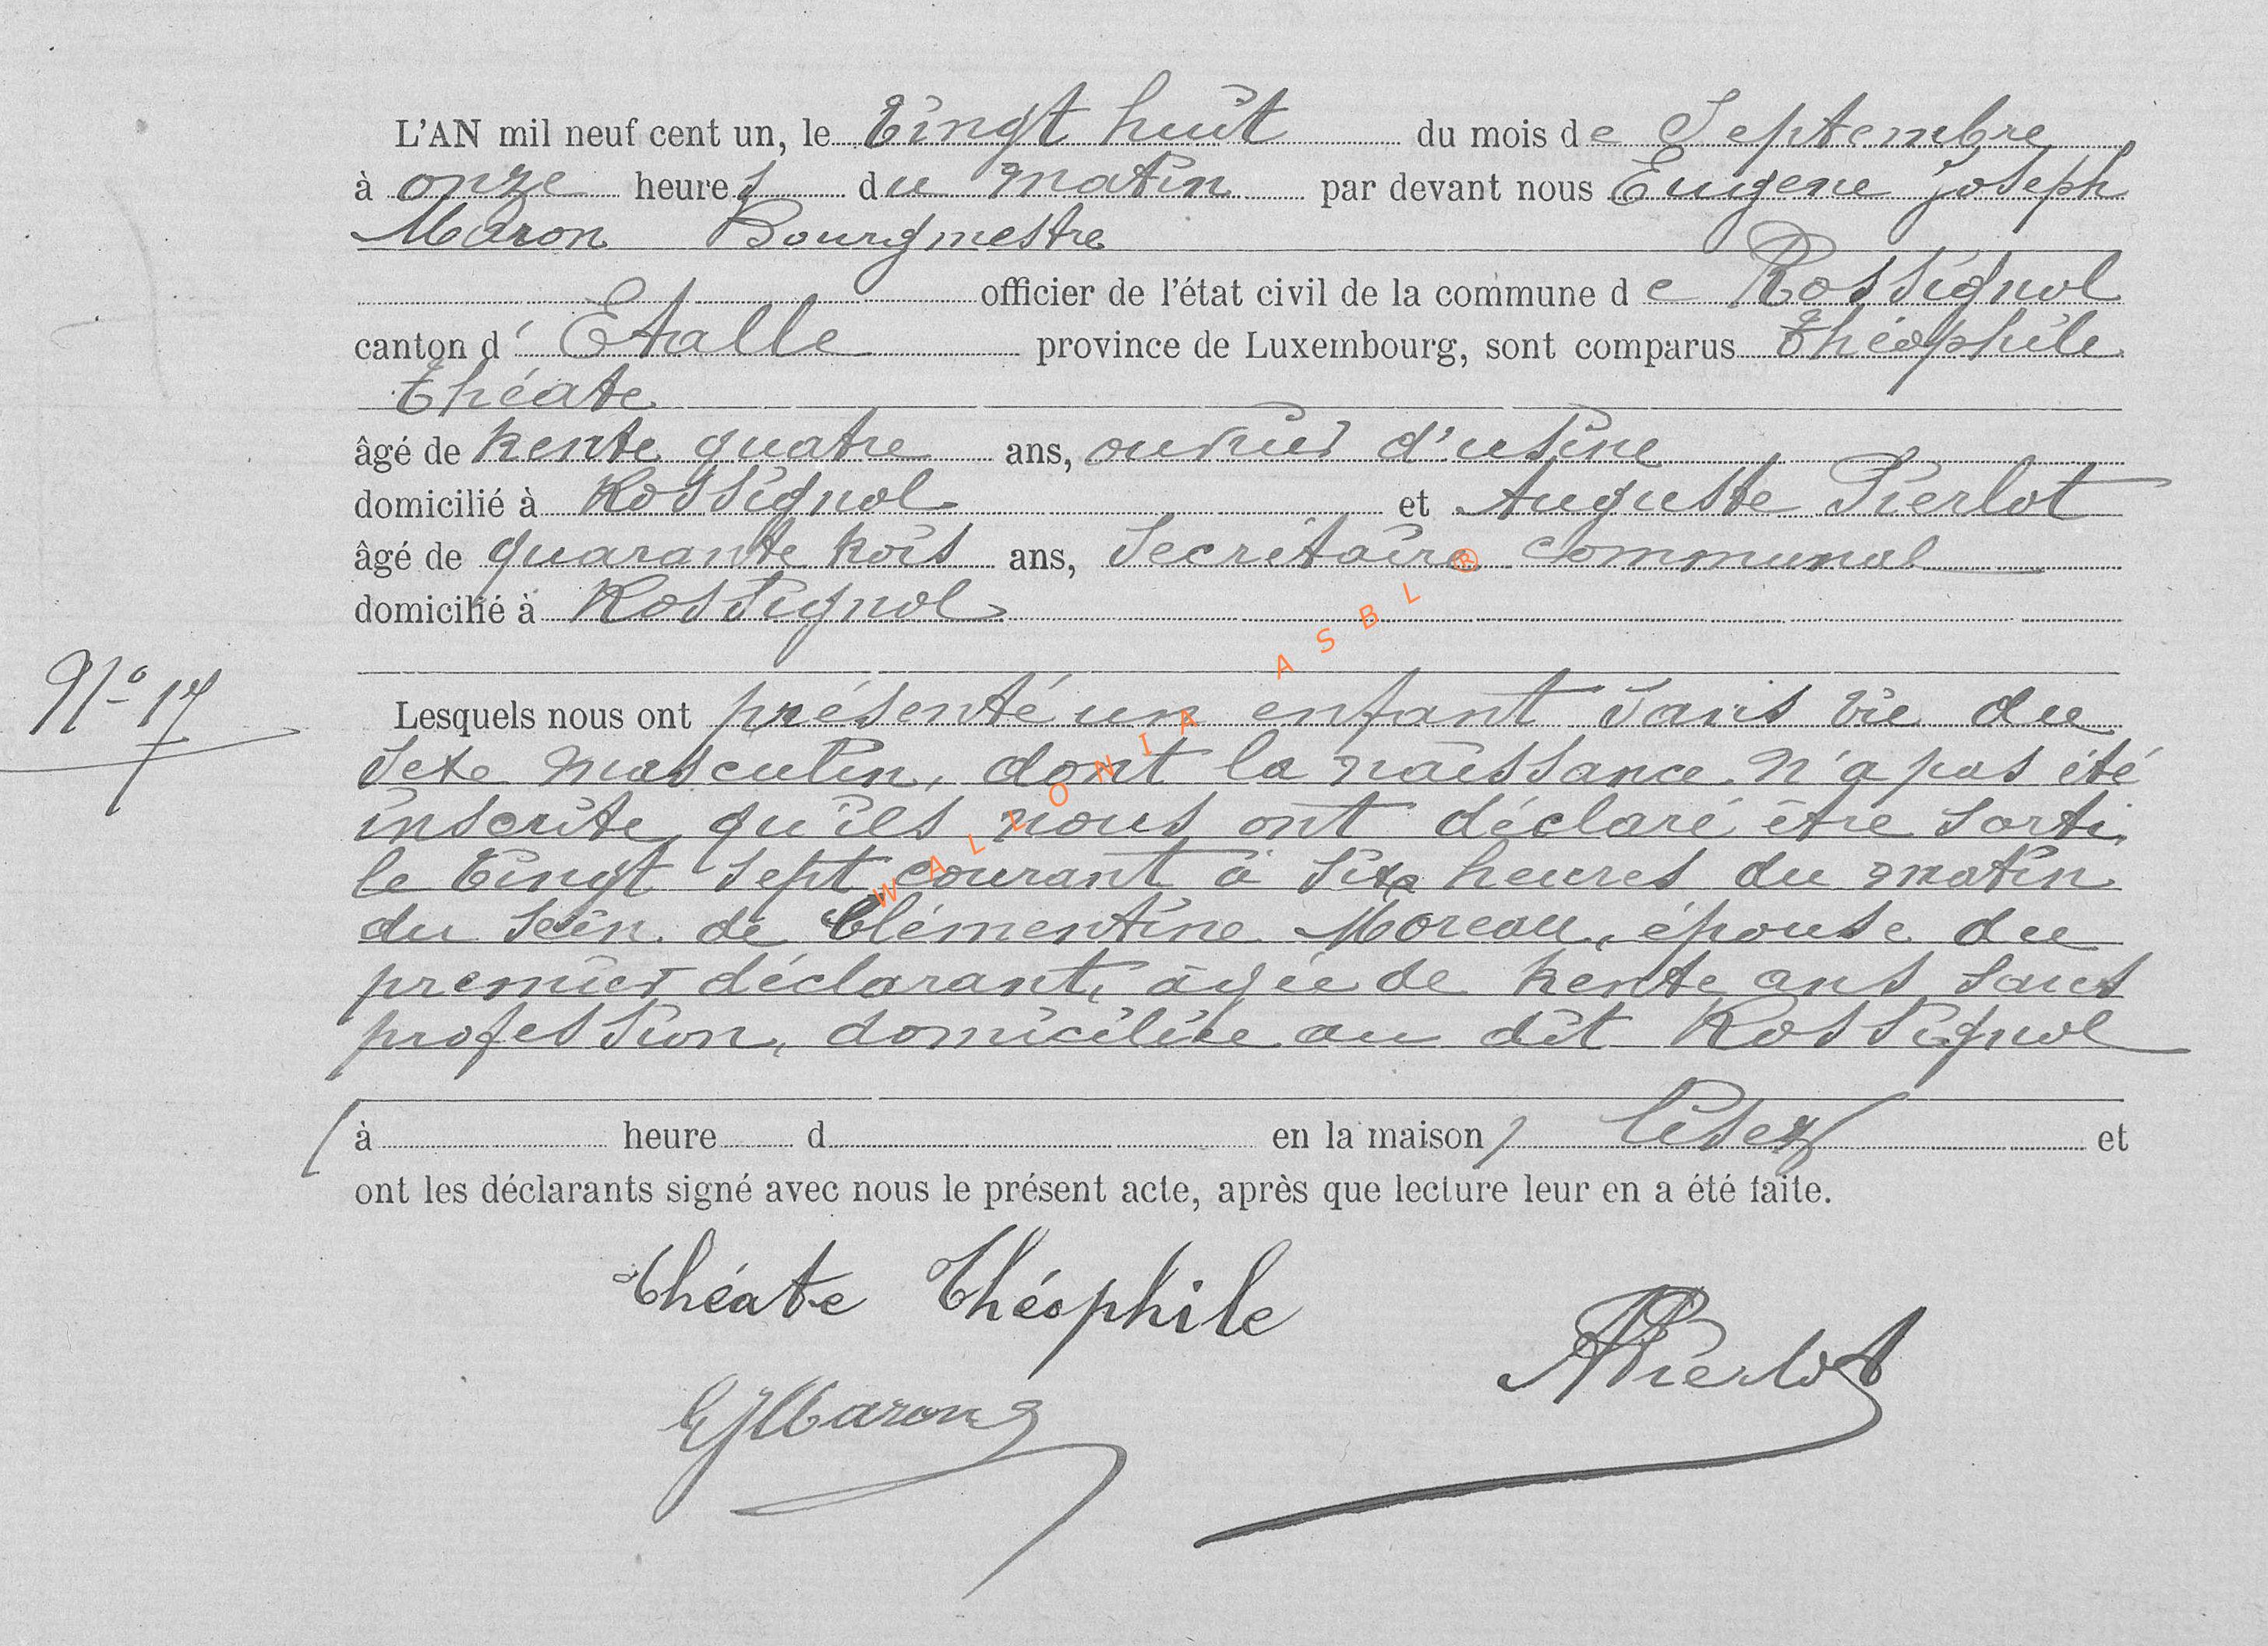 L'AN mil neuf cent un, le Vingt huit du mois de Septembre
à onze heures du matin par devant nous Eugene Joseph
Maron Bourgmestre
officier de l'état civil de la commune de Rossignol
canton d'Etalle province de Luxembourg, sont comparus Théophile
Théate
âgé de trente quatre ans, ouvrier d'usine
domicilié à Rossignol et Auguste Pierlot
âgé de quarante trois ans, Secrétaire communal
domicilié à Rossignol
N° 17
Lesquels nous ont présenté un enfant sans vie du
sexe masculin, dont la naissance n'a pas été
inscrite, qu'ils nous ont déclaré être sorti
le vingt sept courant à six heures du matin
du sein de Clémentine Moreau, épouse du
premier déclarant, âgée de trente ans sans
profession, domiciliée au dit Rossignol
à heure d en la maison, lisez et
ont les déclarants signé avec nous le présent acte, après que lecture leur en a été faite.
Théate Théophile
APierlot
EJMaron
WALLONIA ASBL ®